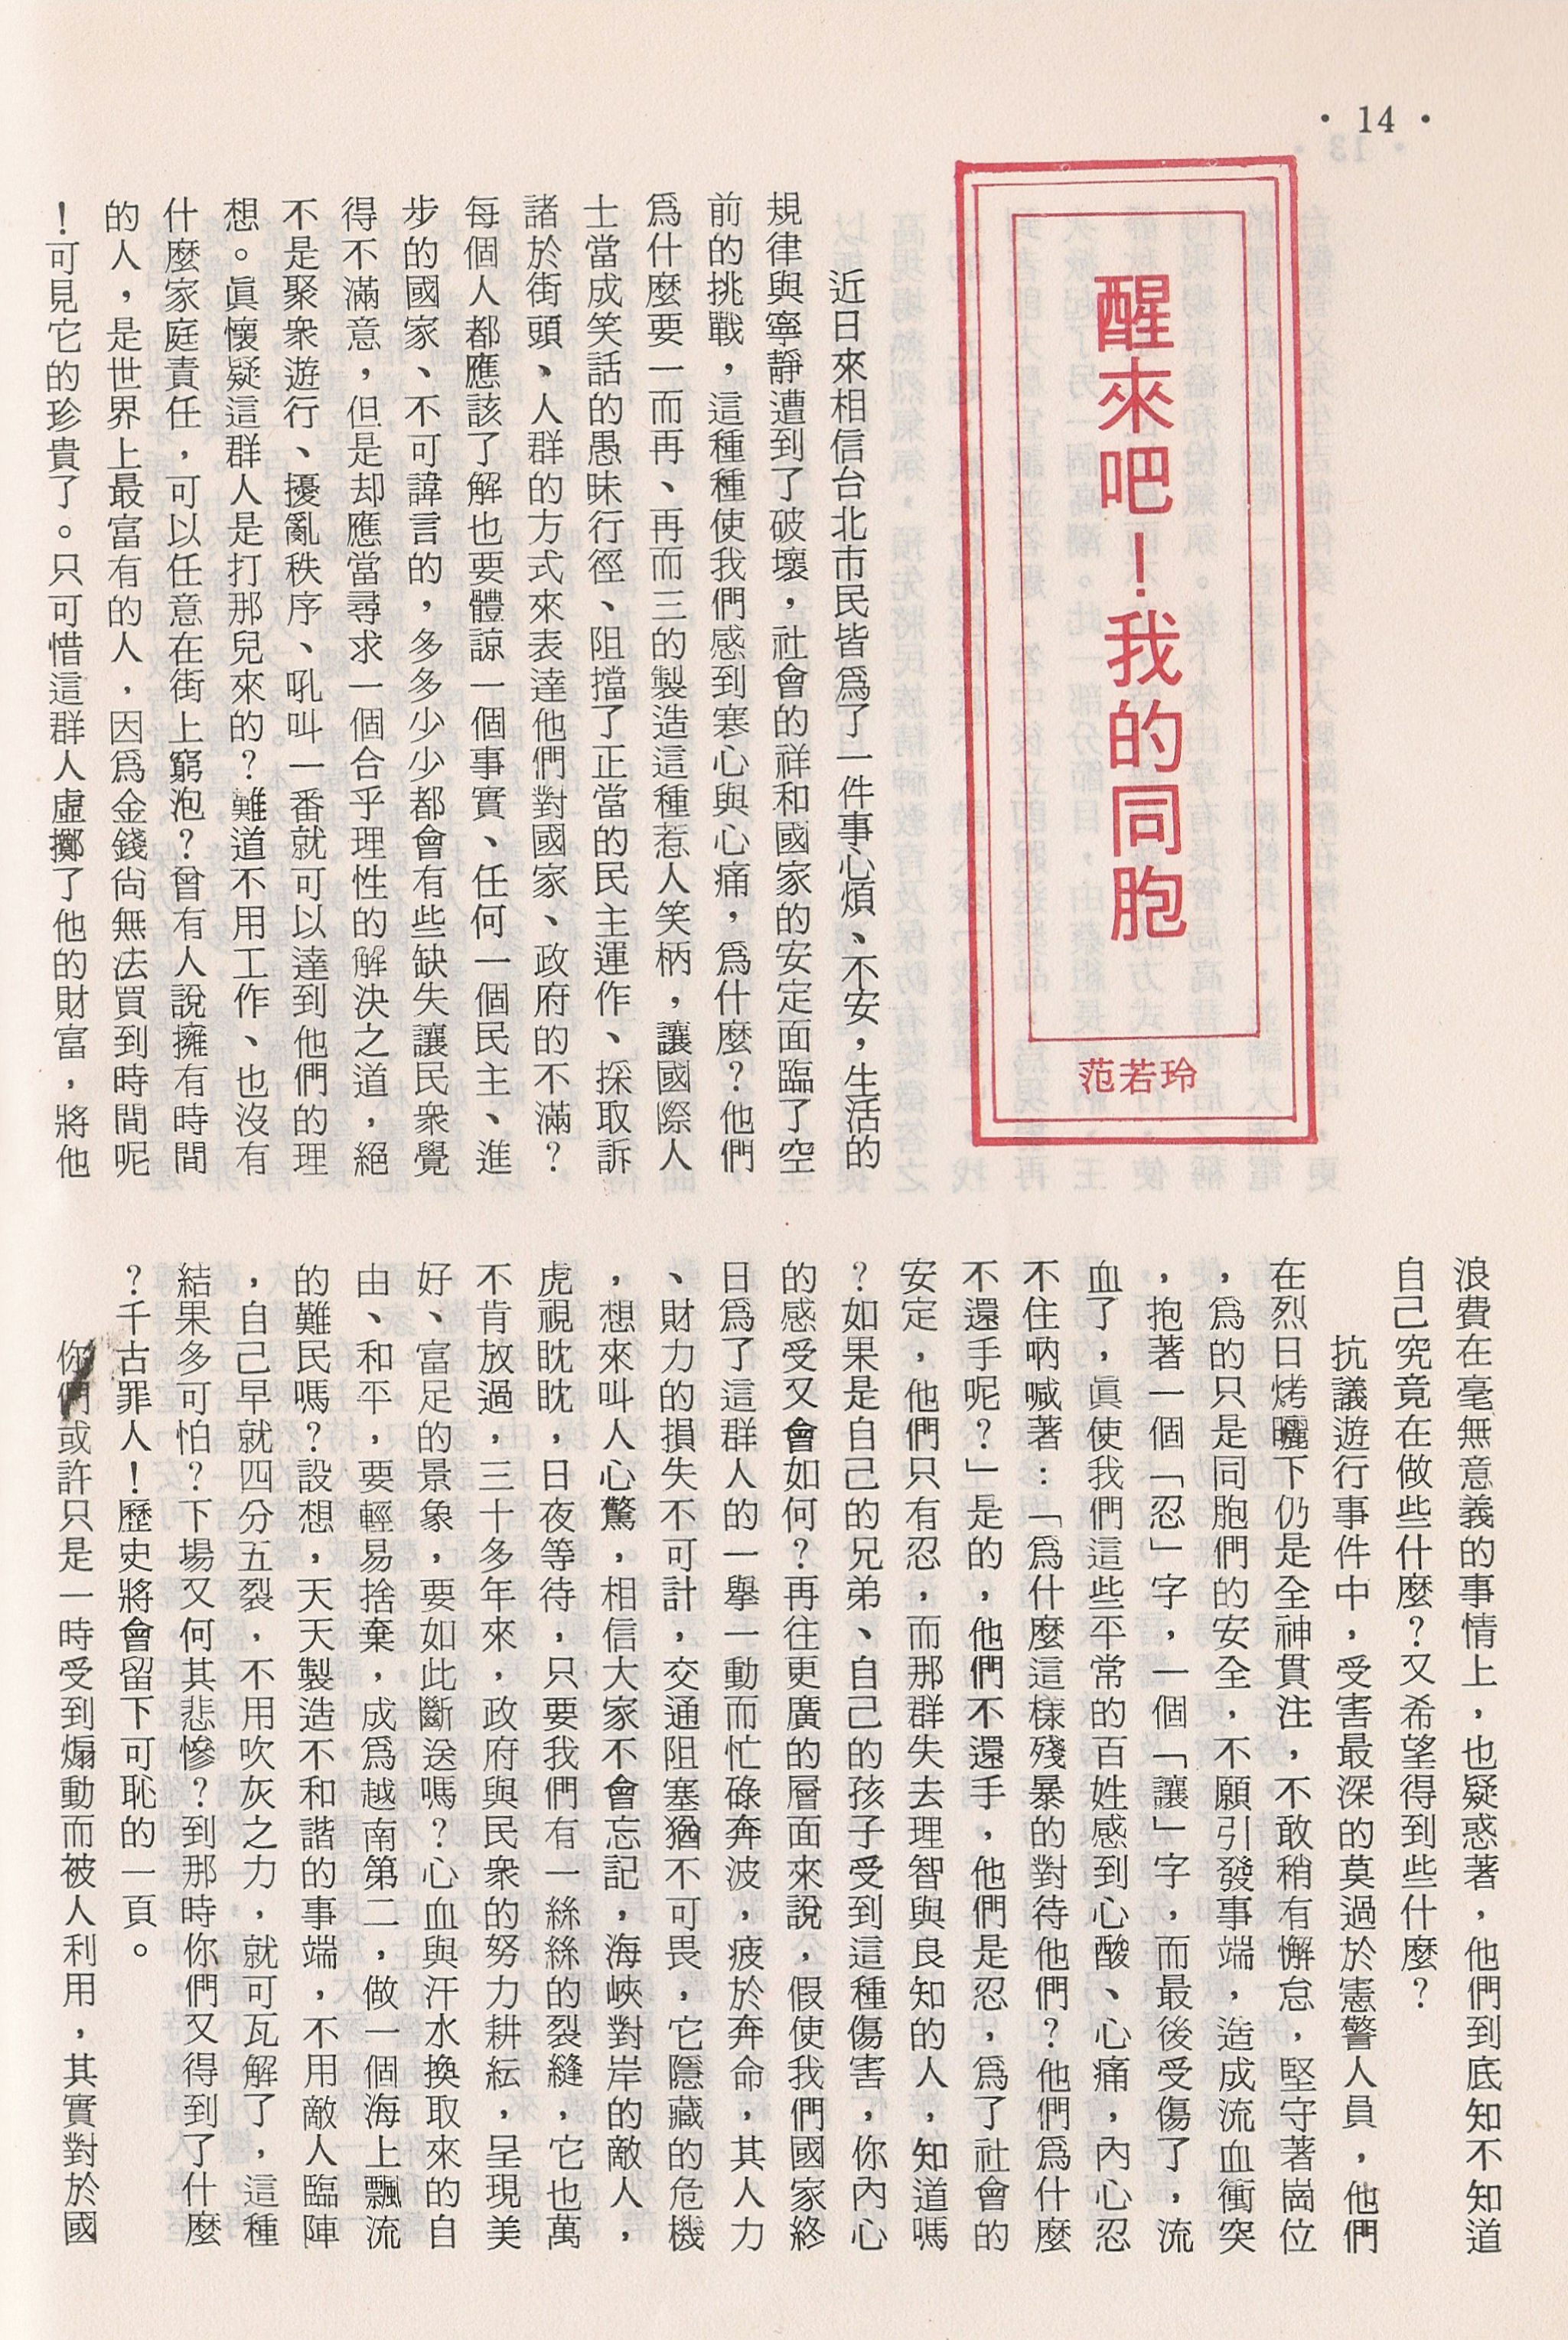 • 14 •
醒來吧！我的同胞
范若玲
近日來相信台北市民皆爲了一件事心煩、不安，生活的
規律與寧靜遭到了破壞，社會的祥和國家的安定面臨了空
前的挑戰，這種種使我們感到寒心與心痛，爲什麼？他們
爲什麼要一而再、再而三的製造這種惹人笑柄，讓國際人
士當成笑話的愚昧行徑、阻擋了正當的民主運作、採取訴
諸於街頭、人群的方式來表達他們對國家、政府的不滿？
每個人都應該了解也要體諒一個事實、任何一個民主、進
步的國家、不可諱言的，多多少少都會有些缺失讓民衆覺
得不滿意，但是却應當尋求一個合乎理性的解決之道，絕
不是聚衆遊行、擾亂秩序、吼叫一番就可以達到他們的理
想。眞懷疑這群人是打那兒來的？難道不用工作、也沒有
什麼家庭責任，可以任意在街上窮泡？曾有人說擁有時間
的人，是世界上最富有的人，因爲金錢尙無法買到時間呢
！可見它的珍貴了。只可惜這群人虛擲了他的財富，將他
浪費在毫無意義的事情上，也疑惑著，他們到底知不知道
自己究竟在做些什麼？又希望得到些什麼？
抗議遊行事件中，受害最深的莫過於憲警人員，他們
在烈日烤曬下仍是全神貫注，不敢稍有懈怠，堅守著崗位
，爲的只是同胞們的安全，不願引發事端，造成流血衝突
，抱著一個「忍」字，一個「讓」字，而最後受傷了，流
血了，眞使我們這些平常的百姓感到心酸、心痛，內心忍
不住吶喊著：「爲什麼這樣殘暴的對待他們？他們爲什麼
不還手呢？」是的，他們不還手，他們是忍，爲了社會的
安定，他們只有忍，而那群失去理智與良知的人，知道嗎
？如果是自己的兄弟、自己的孩子受到這種傷害，你內心
的感受又會如何？再往更廣的層面來說，假使我們國家終
日爲了這群人的一擧一動而忙碌奔波，疲於奔命，其人力
、財力的損失不可計，交通阻塞猶不可畏，它隱藏的危機
，想來叫人心驚，相信大家不會忘記，海峽對岸的敵人，
虎視眈眈，日夜等待，只要我們有一絲絲的裂縫，它也萬
不肯放過，三十多年來，政府與民衆的努力耕耘，呈現美
好、富足的景象，要如此斷送嗎？心血與汗水換取來的自
由、和平，要輕易捨棄，成爲越南第二，做一個海上飄流
的難民嗎？設想，天天製造不和諧的事端，不用敵人臨陣
，自己早就四分五裂，不用吹灰之力，就可瓦解了，這種
結果多可怕？下場又何其悲慘？到那時你們又得到了什麼
？千古罪人！歷史將會留下可恥的一頁。
你們或許只是一時受到煽動而被人利用，其實對於國